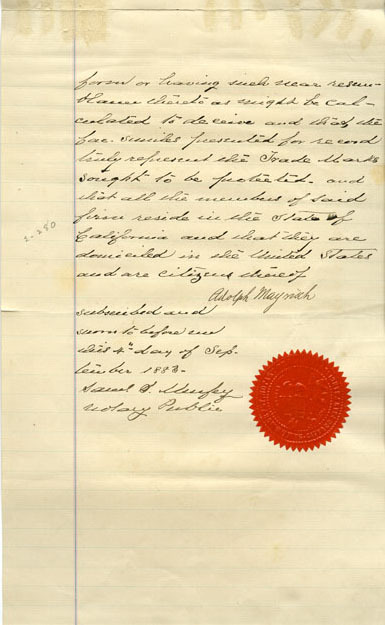 form or having such near resem-
blance thereto as might be cal-
culated to deceive and that the
fac-similes presented for record
truly represent the Trade Marks
sought to be protected. and
that all the members of said
firm reside in the State of
California and that they are
domiciled in the United States
and are citizens thereof
Adolph
subscribed and
sworn to before me
this 4th day of Sep-
tember 1883.
Saml S. Murfey
Notary Public
2-280